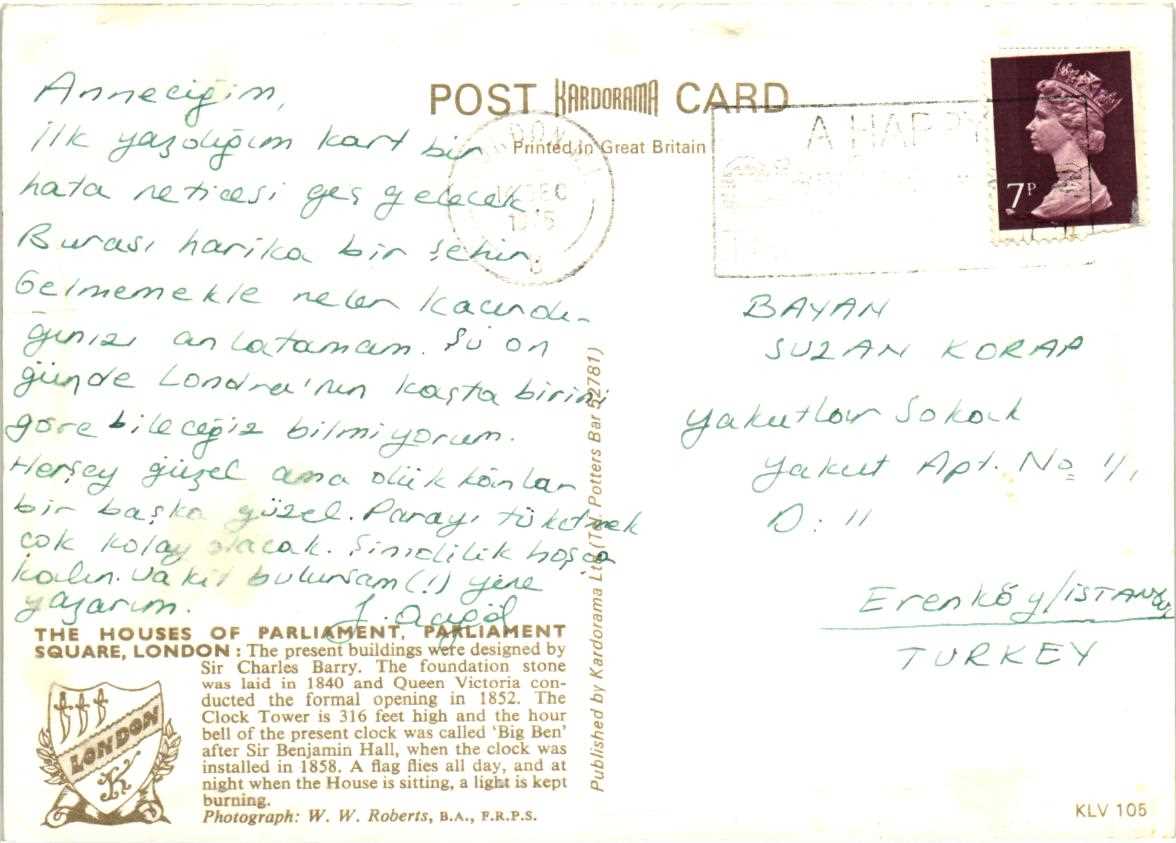 POST KARDORAMA CARD
Printed in Great Britain
Anneciğim,
İlk yazdığım kart bir
hata neticesi geç gelecek.
Burası harika bir şehir.
Gelmemekle neler kaçırdı-
ğınızı anlatamam. Şu on
günde Londra'nın kaçta birini
görebileceğiz bilmiyorum.
Herşey güzel ama dükkânlar
bir başka güzel. Parayı tüketmek
çok kolay olacak. Şimdilik hoşça
kalın. Vakit bulursam (!) yine
yazarım.
DEC
A HAPPY
7P
BAYAN
SUZAN KORAP
Yakutlar Sokak
Yakut Apt. No 1/1
D: 11
Erenköy/İSTANBUL
TURKEY
THE HOUSES OF PARLIAMENT, PARLIAMENT
SQUARE, LONDON : The present buildings were designed by
Sir Charles Barry. The foundation stone
was laid in 1840 and Queen Victoria con-
ducted the formal opening in 1852. The
Clock Tower is 316 feet high and the hour
bell of the present clock was called 'Big Ben'
after Sir Benjamin Hall, when the clock was
installed in 1858. A flag flies all day, and at
night when the House is sitting, a light is kept
burning.
Photograph: W. W. Roberts, B.A., F.R.P.S.
LONDON
K
Published by Kardorama Ltd. (Tel. Potters Bar 52781)
KLV 105